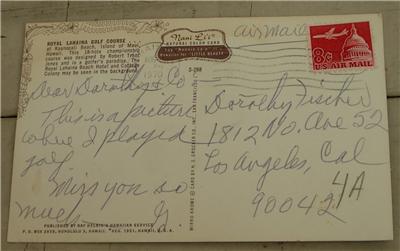 ROYAL LAHAINA GOLF COURSE
at Kaanapali Beach, Island of Maui,
Hawaii. This 18-hole championship
course was designed by Robert Trent
Jones and is a golfer's paradise. The
Royal Lahaina Beach Hotel and Cottage
Colony may be seen in the background.
Nani Li'i
NATURAL COLOR CARD
S-298
1970
Air Mail
8¢
U.S. AIR MAIL
Dear Dorothy & Co
This is a picture
where I played
golf.
Miss you so
much
Dorothy Fischer
1812 No. Ave 52
Los Angeles, Cal
90042
4A
PUBLISHED BY RAY HELBIG'S HAWAIIAN SERVICE
P. O. BOX 2835, HONOLULU 3, HAWAII
HAWAII, U.S.A.
MIKE ROBERTS